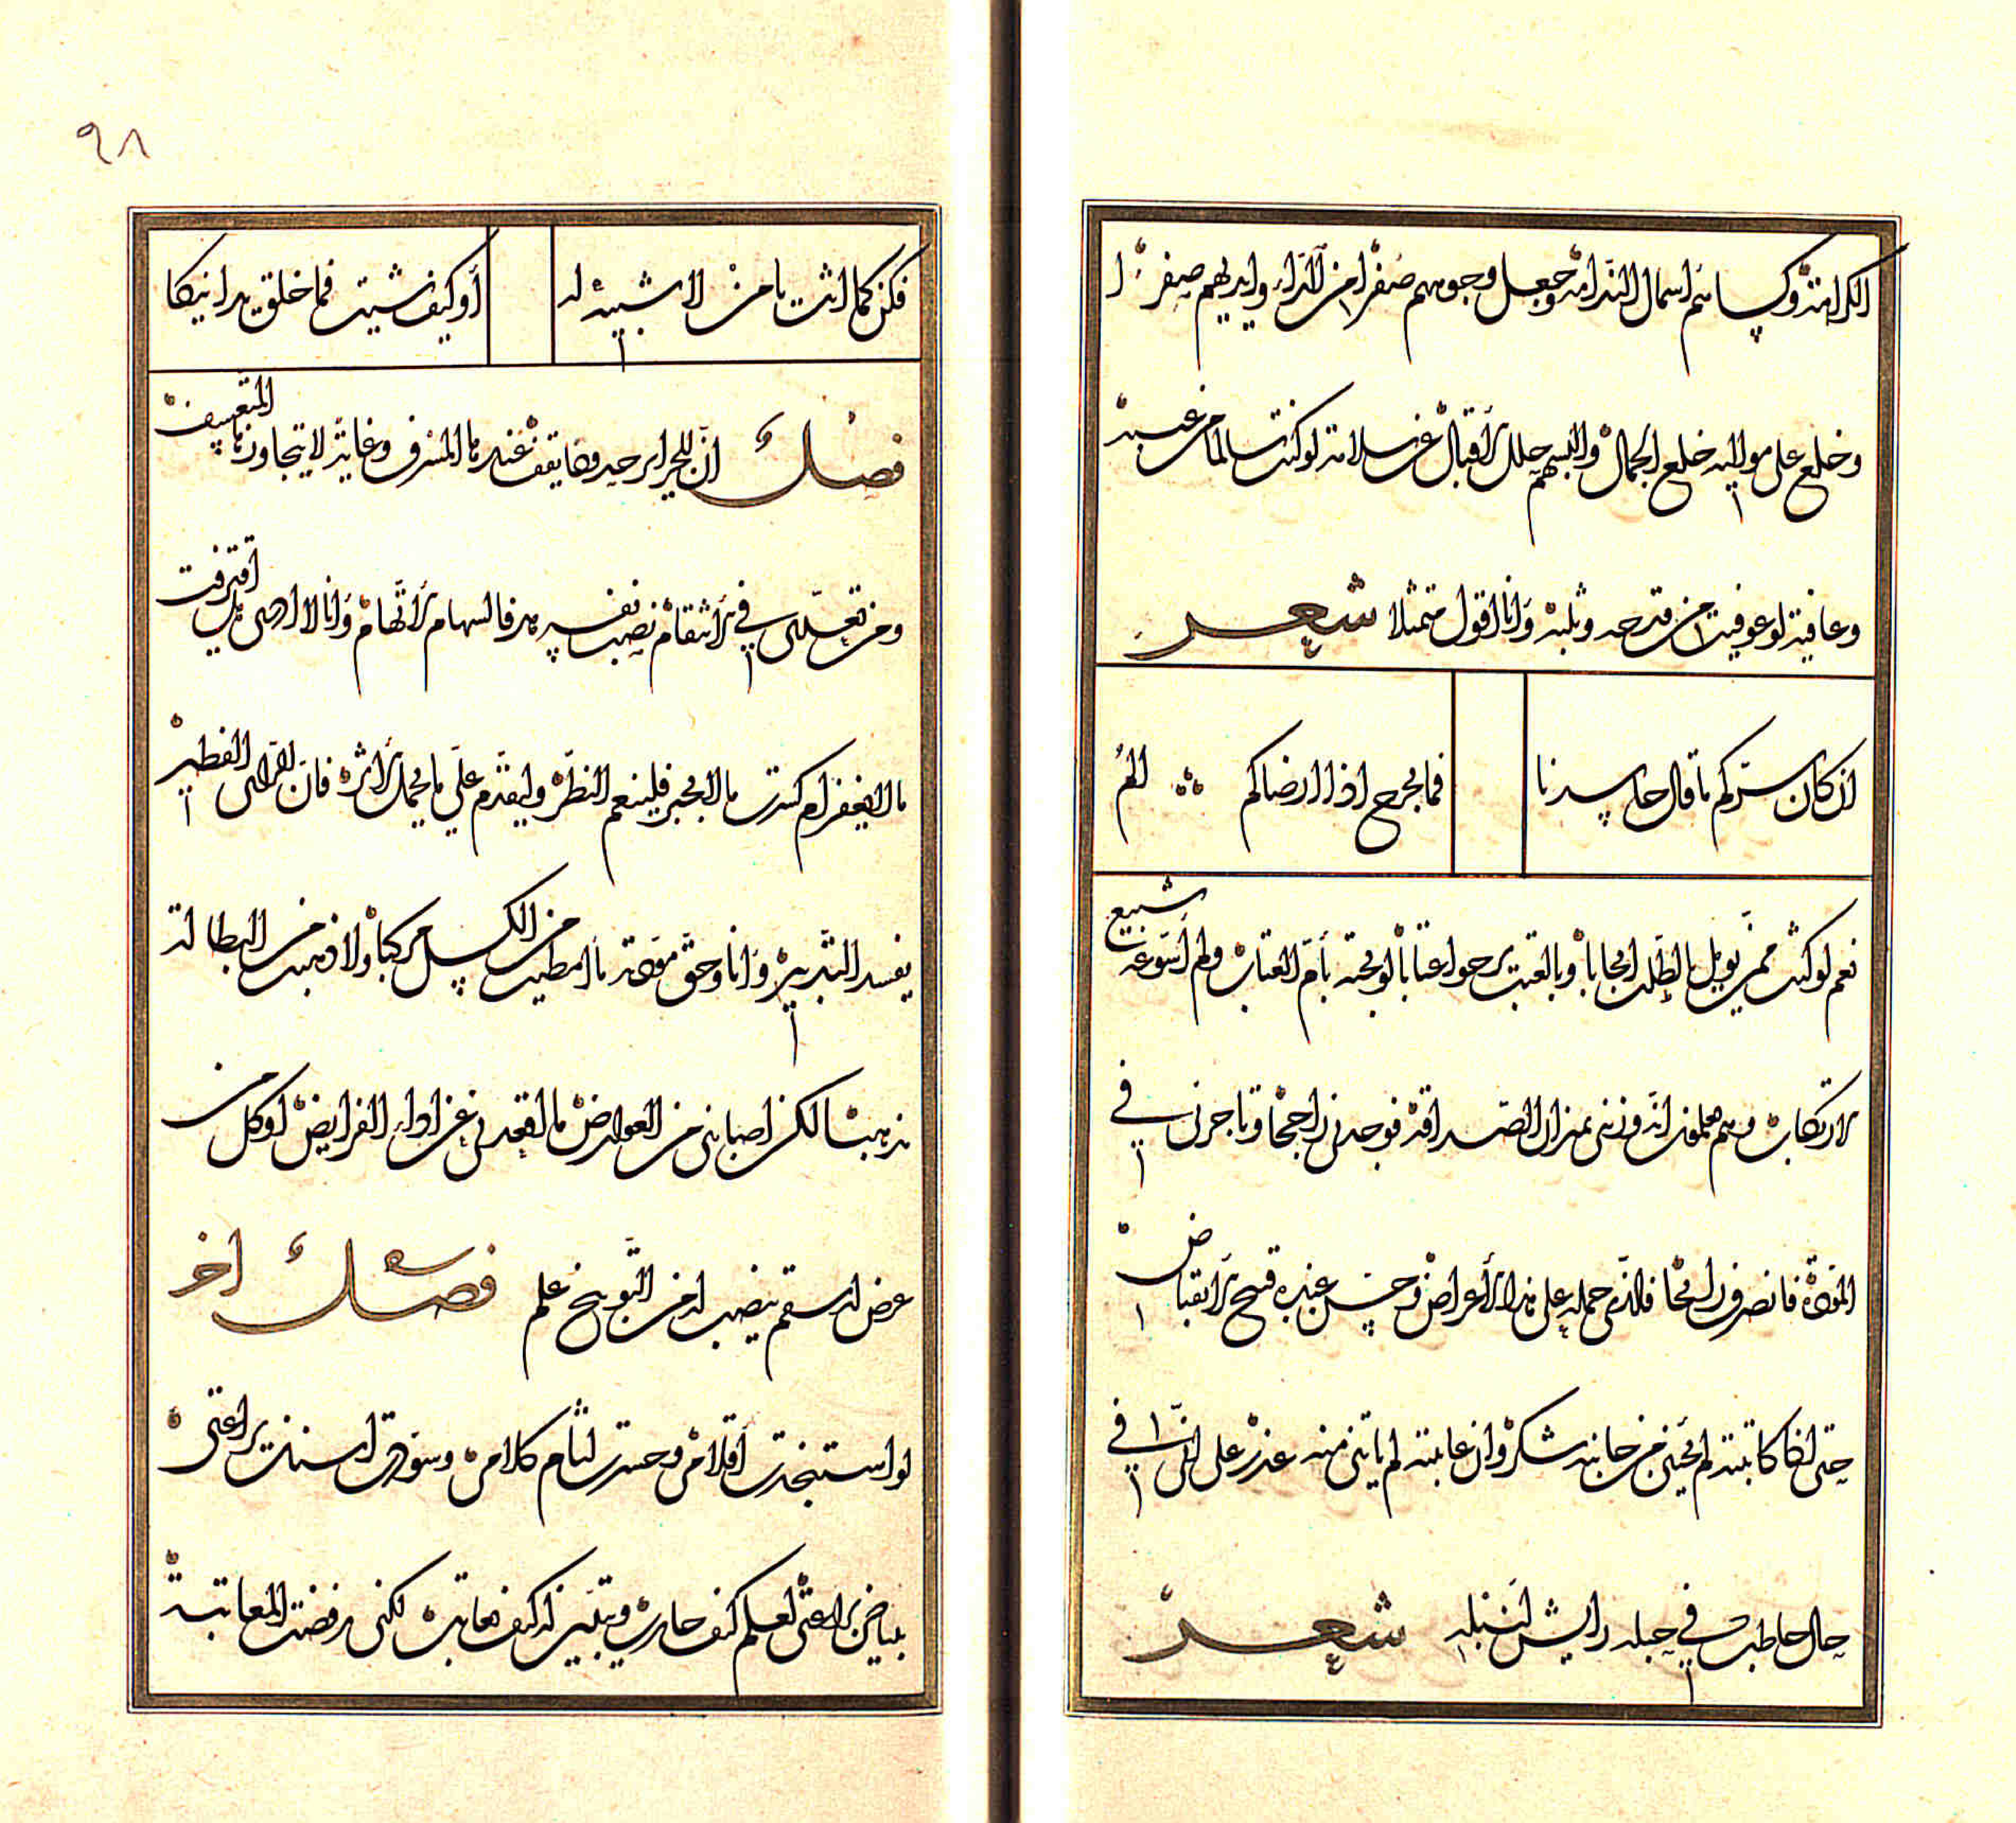 الكرامة وكساهم اسمال الندامة وجعل وجوههم صفرا من الداء وايديهم صفرا
وخلع على مواليه خلع الجمال والبسهم حلل الاقبال عن سلامة لو كنت سالما من عيبه
وعافية لو عوفيت من قدحه وثلبه وانا اقول متمثلا شعر
ان كان سركم ما قال حاسدنا فما لجرح اذا ارضاكم الم
نعم لو كنت ممن يؤمل بالطلب ايجابا وبالعتب يرجو اعتابا لوبخته بأمر العتاب ولم أسوغه شنيع
الارتكاب وهم علموا انه وزنني بميزان الصداقة فوجدني راجحا وتاجرني في
المودة فانصرف رابحا فما الذي حمله على هذا الأعراض وحسن عنده قبح الانقباض
حتى اذا كاتبته لم يجئني من جانبه شكر وان عاتبته لم يأتني منه عذر على انني في
حال حاطب في حبله رايش لنبله شعر
٩٨
فكن كما انت يا من لا شبيه له أو كيف شيت فما خلق يدانيكا
فصل ان للجرايم حدودا يقف عندها المسرف وغاية لا يتجاوزها المتعسف
ومن تعدى في الانتقام نصب نفسه هدفا لسهام الاتهام وانا لا ادري هل اقترفت
ما لا يغفر ام كسرت ما لا يجبر فلينعم النظر وليقدم علي ما يحمل اثره فان الراي الفطير
يفسد التدبير وانا وحق مودته ما امطيت من الكسل مركبا ولا ذهبت من البطالة
مذهبا لكن اصابني من العوارض ما اقعدني عن اداء الفرايض او كل من
عرض له سقم ينصب له من التوبيخ علم فصل اخر
لو استنجدت أقلامي وحسرت لثام كلامي وسودت اسنة يراعتي
بمياض براعتي لعلم كيف حارب وتبين له كيف عاتب لكني رفضت المعاتبة